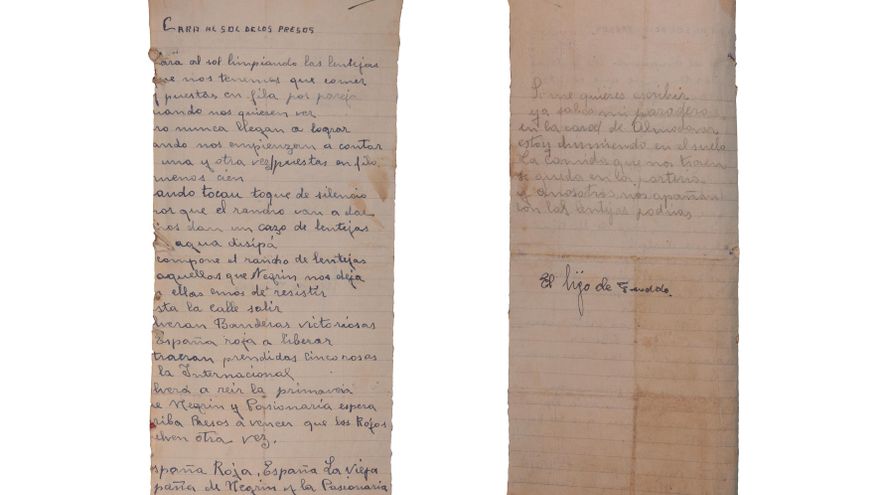 CARA AL SOL DE LOS PRESOS
Cara al sol limpiando las lentejas
que nos tenemos que comer
y puestas en fila por pareja
cuando nos quieren ver
ro nunca llegan a lograr
ando nos empienzan a contar
una y otra vez puestas en fila
menos cien
ando tocau toque de silencio
nos que el rancho van a dar
nos dan un cazo de lentejas
agua disipá
compone el rancho de lentejas
aquellas que Negrin nos deja
ellas emos de resistir
sta la calle salir
lveran Banderas victoriosas
España roja a liberar
traeran prendidas cinco rosas
la Internacional
lverá a reir la primavera
ue Negrin y Pasionaria espera
riba Presos a vencer que los Rojos
elven otra vez.
spaña Roja, España La Vieja
paña de Negrin y la Pasionaria
Si me quieres escribir
ya sabes mi paradero
en la carcel de Almodovar
estoy durmiendo en el suelo
La comida que nos traen
se queda en la porteria
y anosotras nos apañan
con las lentejas podrias
El hijo de